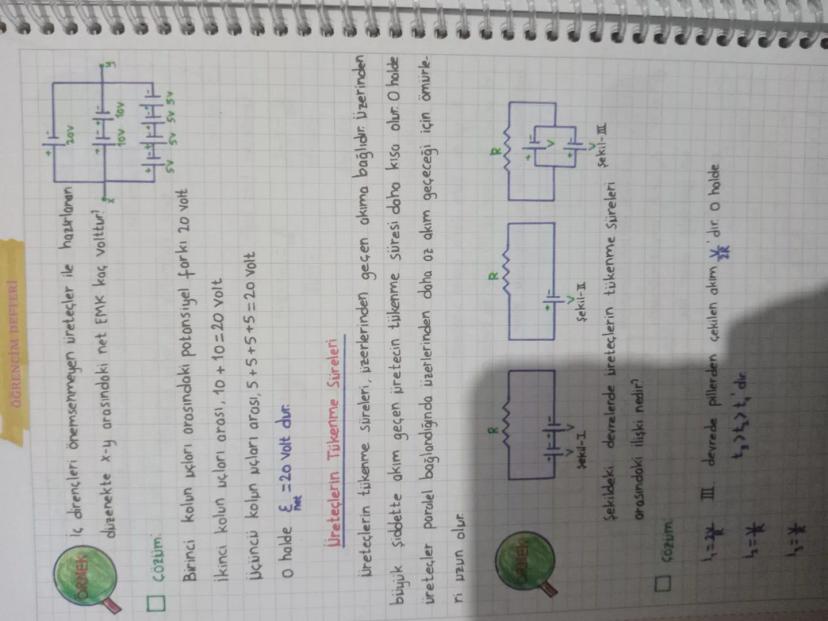 ÖĞRENCİM DEFTERİ
ÖRNEK
İç dirençleri önemsenmeyen üreteçler ile hazırlanan
düzenekte x-y arasındaki net EMK kaç volttur?
+ 20V
x + + y
10V 10V
+ + + +
5V 5V 5V 5V
Çözüm:
Birinci kolun uçları arasındaki potansiyel farkı 20 volt
ikinci kolun uçları arası, 10+10=20 volt
üçüncü kolun uçları arası, 5+5+5+5=20 volt
O halde ε net =20 volt dur.
Üreteçlerin Tükenme Süreleri
Üreteçlerin tükenme süreleri, üzerlerinden geçen akıma bağlıdır. Üzerinden
büyük şiddette akım geçen üretecin tükenme süresi daha kısa olur. O halde
üreteçler paralel bağlandığında üzerlerinden daha az akım geçeceği için ömürle-
ri uzun olur.
ÖRNEK
R R R
+ + + +
V V V V V
Şekil-I Şekil-II Şekil-III
Şekildeki devrelerde üreteçlerin tükenme süreleri
arasındaki ilişki nedir?
Çözüm:
I₁=2V/R III. devrede pillerden çekilen akım V/2R 'dir. O halde
I₂=V/R t₃>t₂>t₁' dir.
I₃=V/R